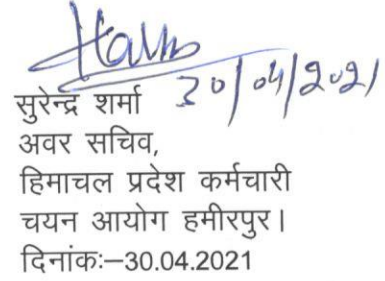 30/04/2021
सुरेन्द्र शर्मा
अवर सचिव,
हिमाचल प्रदेश कर्मचारी
चयन आयोग हमीरपुर।
दिनांकः–30.04.2021